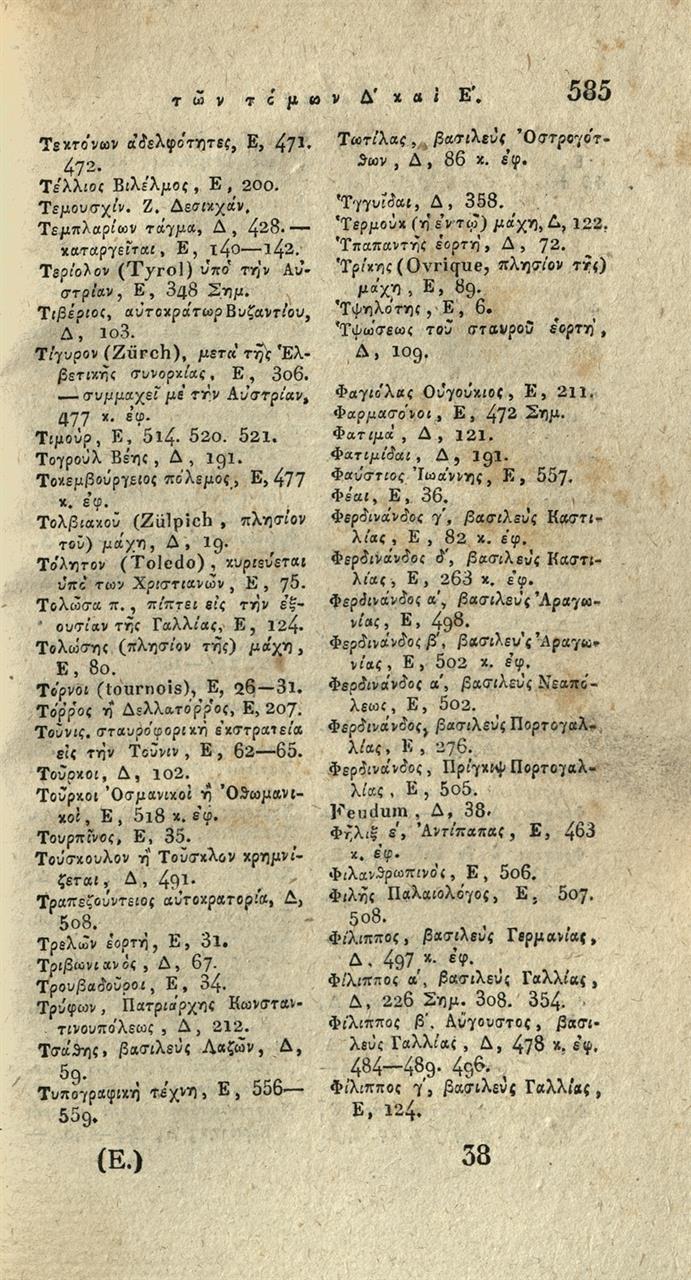 τῶν τόμων Δ′ καὶ Ε′. 585
Τεκτόνων ἀδελφότητες, Ε, 471.
472.
Τέλλιος Βιλέλμος, Ε, 200.
Τεμουσχίν. Ζ. Δεσικχάν.
Τεμπλαρίων τάγμα, Δ, 428. —
καταργεῖται, Ε, 140—142.
Τερίολον (Tyrol) ὑπὸ τὴν Αὐ-
στρίαν, Ε, 348 Σημ.
Τιβέριος, αὐτοκράτωρ Βυζαντίου,
Δ, 103.
Τίγυρον (Zürch), μετὰ τῆς Ἑλ-
βετικῆς συνορκίας, Ε, 306.
— συμμαχεῖ μὲ τὴν Αὐστρίαν,
477 κ. ἐφ.
Τιμούρ, Ε, 514. 520. 521.
Τογρούλ Βέης, Δ, 191.
Τοκεμβούργειος πόλεμος, Ε, 477
κ. ἐφ.
Τολβιακοῦ (Zülpich, πλησίον
τοῦ) μάχη, Δ, 19.
Τόλητον (Toledo), κυριεύεται
ὑπὸ των Χριστιανῶν, Ε, 75.
Τολῶσα π., πίπτει εἰς τὴν ἐξ-
ουσίαν τῆς Γαλλίας, Ε, 124.
Τολώσης (πλησίον τῆς) μάχη,
Ε, 80.
Τόρνοι (tournois), Ε, 26—31.
Τόῤῥος ἢ Δελλατόῤῥος, Ε, 207.
Τούνις. σταυροφορικὴ ἐκστρατεία
εἰς τὴν Τοῦνιν, Ε, 62—65.
Τοῦρκοι, Δ, 102.
Τοῦρκοι Ὀσμανικοὶ ἢ Ὀθωμανι-
κοὶ, Ε, 518 κ. ἐφ.
Τουρπῖνος, Ε, 35.
Τούσκουλον ἢ Τοῦσκλον κρημνί-
ζεται, Δ, 491.
Τραπεζούντειος αὐτοκρατορία, Δ,
508.
Τρελῶν ἑορτή, Ε, 31.
Τριβωνιανός, Δ, 67.
Τρουβαδοῦροι, Ε, 34.
Τρύφων, Πατριάρχης Κωνσταν-
τινουπόλεως, Δ, 212.
Τσάθης, βασιλεὺς Λαζῶν, Δ,
59.
Τυπογραφικὴ τέχνη, Ε, 556—
559.
Τωτίλας, βασιλεὺς Ὀστρογότ-
θων, Δ, 86 κ. ἐφ.
Ὑγγυΐδαι, Δ, 358.
Ὑερμούκ (ἡ ἐν τῷ) μάχη, Δ, 122.
Ὑπαπαντῆς ἑορτή, Δ, 72.
Ὑρίκης (Ovrique, πλησίον τῆς)
μάχη, Ε, 89.
Ὑψηλότης, Ε, 6.
Ὑψώσεως τοῦ σταυροῦ ἑορτὴ,
Δ, 109.
Φαγιόλας Οὐγούκιος, Ε, 211.
Φαρμασόνοι, Ε, 472 Σημ.
Φατιμά, Δ, 121.
Φατιμίδαι, Δ, 191.
Φαύστιος Ἰωάννης, Ε, 557.
Φέαι, Ε, 36.
Φερδινάνδος γ′, βασιλεὺς Καστι-
λίας, Ε, 82 κ. ἐφ.
Φερδινάνδος δ′, βασιλεὺς Καστι-
λίας, Ε, 263 κ. ἐφ.
Φερδινάνδος α′, βασιλεὺς Ἀραγω-
νίας, Ε, 498.
Φερδινάνδος β′, βασιλεὺς Ἀραγω-
νίας, Ε, 502 κ. ἐφ.
Φερδινάνδος α′, βασιλεὺς Νεαπό-
λεως, Ε, 502.
Φερδινάνδος, βασιλεὺς Πορτογαλ-
λίας, Ε, 276.
Φερδινάνδος, Πρίγκιψ Πορτογαλ-
λίας, Ε, 505.
Feudum, Δ, 38.
Φῆλιξ ε′, Ἀντίπαπας, Ε, 463
κ. ἐφ.
Φιλανθρωπινός, Ε, 506.
Φιλῆς Παλαιολόγος, Ε, 507.
508.
Φίλιππος, βασιλεὺς Γερμανίας,
Δ. 497 κ. ἐφ.
Φίλιππος α′, βασιλεὺς Γαλλίας,
Δ, 226 Σημ. 308. 354.
Φίλιππος β′. Αὔγουστος, βασι-
λεὺς Γαλλίας, Δ, 478 κ. ἐφ.
484—489. 496.
Φίλιππος γ′, βασιλεὺς Γαλλίας,
Ε, 124.
(Ε.) 38